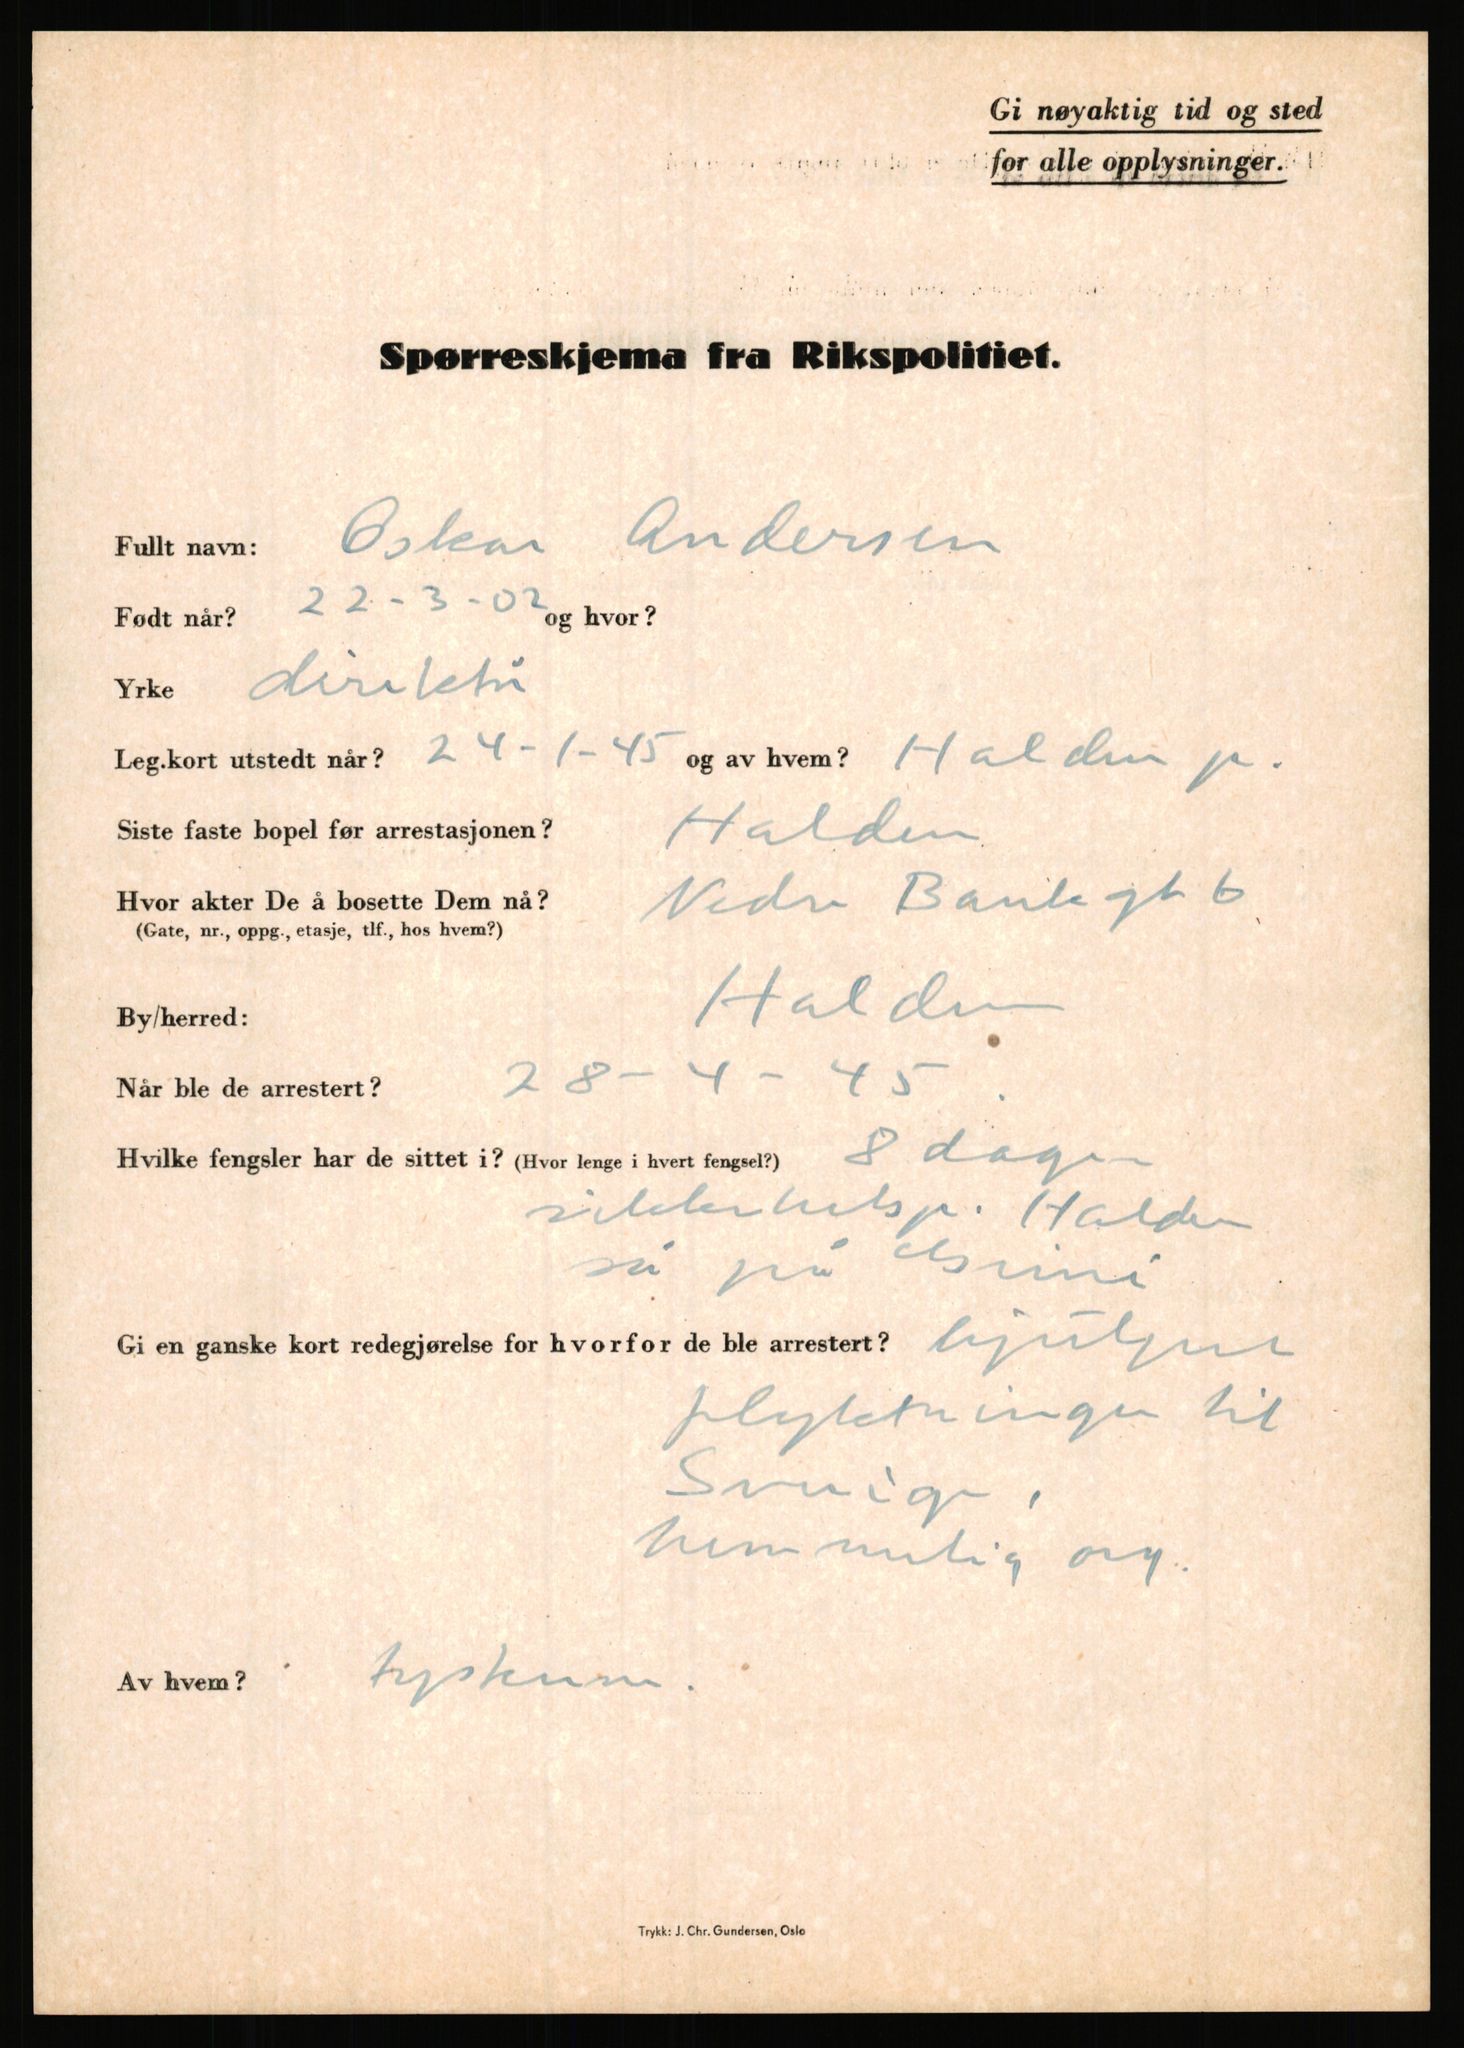 Gi nøyaktig tid og sted
for alle opplysninger.
Spørreskjema fra Rikspolitiet.
Fullt navn: Oskar Andersen
Født når? 22-3-02 og hvor?
Yrke direktør
Leg.kort utstedt når? 24-1-45 og av hvem? Halden p.
Siste faste bopel før arrestasjonen? Halden
Hvor akter De å bosette Dem nå? Nedre Bankegt 6
(Gate, nr., oppg., etasje, tlf., hos hvem?)
By/herred: Halden
Når ble de arrestert? 28-4-45.
Hvilke fengsler har de sittet i? (Hvor lenge i hvert fengsel?) 8 dager
sikkerhetsp. Halden
så på
Gi en ganske kort redegjørelse for hvorfor de ble arrestert? hjulpet
flyktninger til
Sverige,
hemmelig org.
Av hvem? tyskerne.
Trykk: J. Chr. Gundersen, Oslo